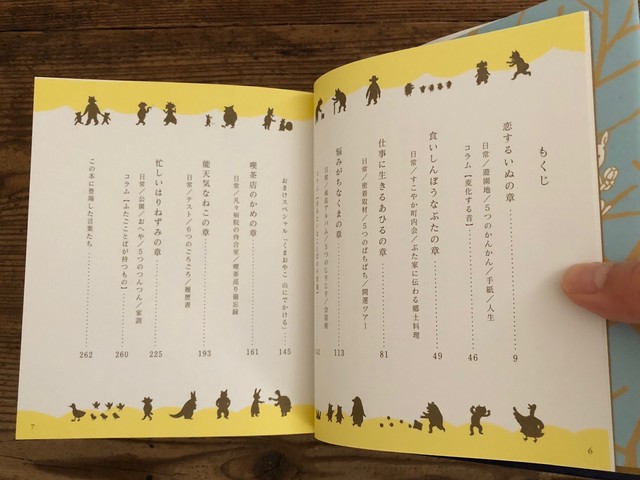 もくじ
恋するいぬの章 9
日常／遊園地／5つのかんかん／手紙／人生
コラム【変化する音】 46
食いしんぼうなぶたの章 49
日常／すこやか町内会／ぶた家に伝わる郷土料理
仕事に生きるあひるの章 81
日常／密着取材／5つのぱちぱち／開運ツアー
悩みがちなくまの章 113
おまけスペシャル「くまおやこ 山にでかける」 145
喫茶店のかめの章 161
日常／凡々病院の待合室／喫茶巡り備忘録
能天気なねこの章 193
日常／テスト／6つのごろごろ／履歴書
忙しいはりねずみの章 225
日常／公園／おへや／5つのつんつん／家訓
コラム【ふたごことばが持つもの】 260
この本に登場した言葉たち 262
6
7